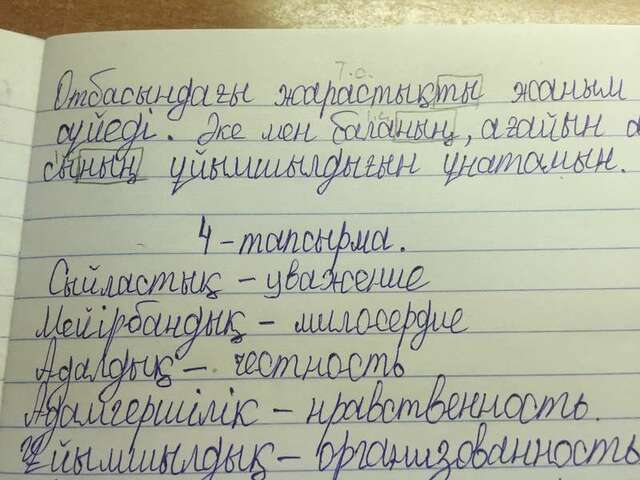 Отбасындағы жарастықты жаным
сүйеді. Әке мен баланың, ағайын
ның ұйымшылдығын ұнатамын.
4-тапсырма.
Сыйластық - уважение
Мейірбандық - милосердие
Адалдық - честность
Әдептілік - нравственность
Ұйымшылдық - организованность